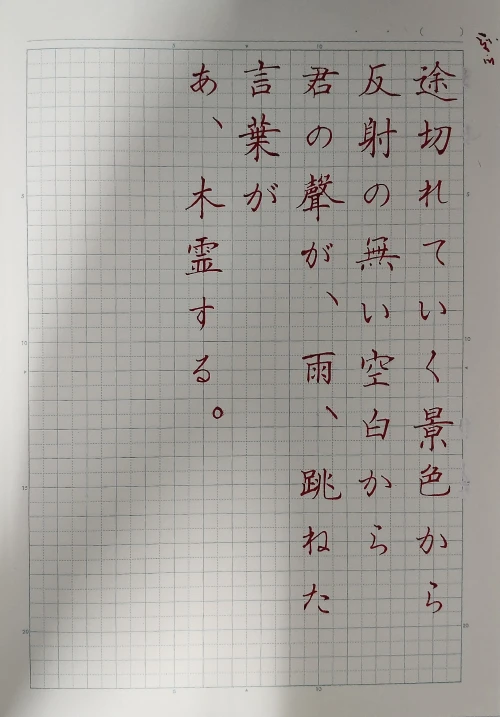 途切れていく景色から
反射の無い空白から
君の聲が、雨、跳ねた
言葉が
あ、木霊する。